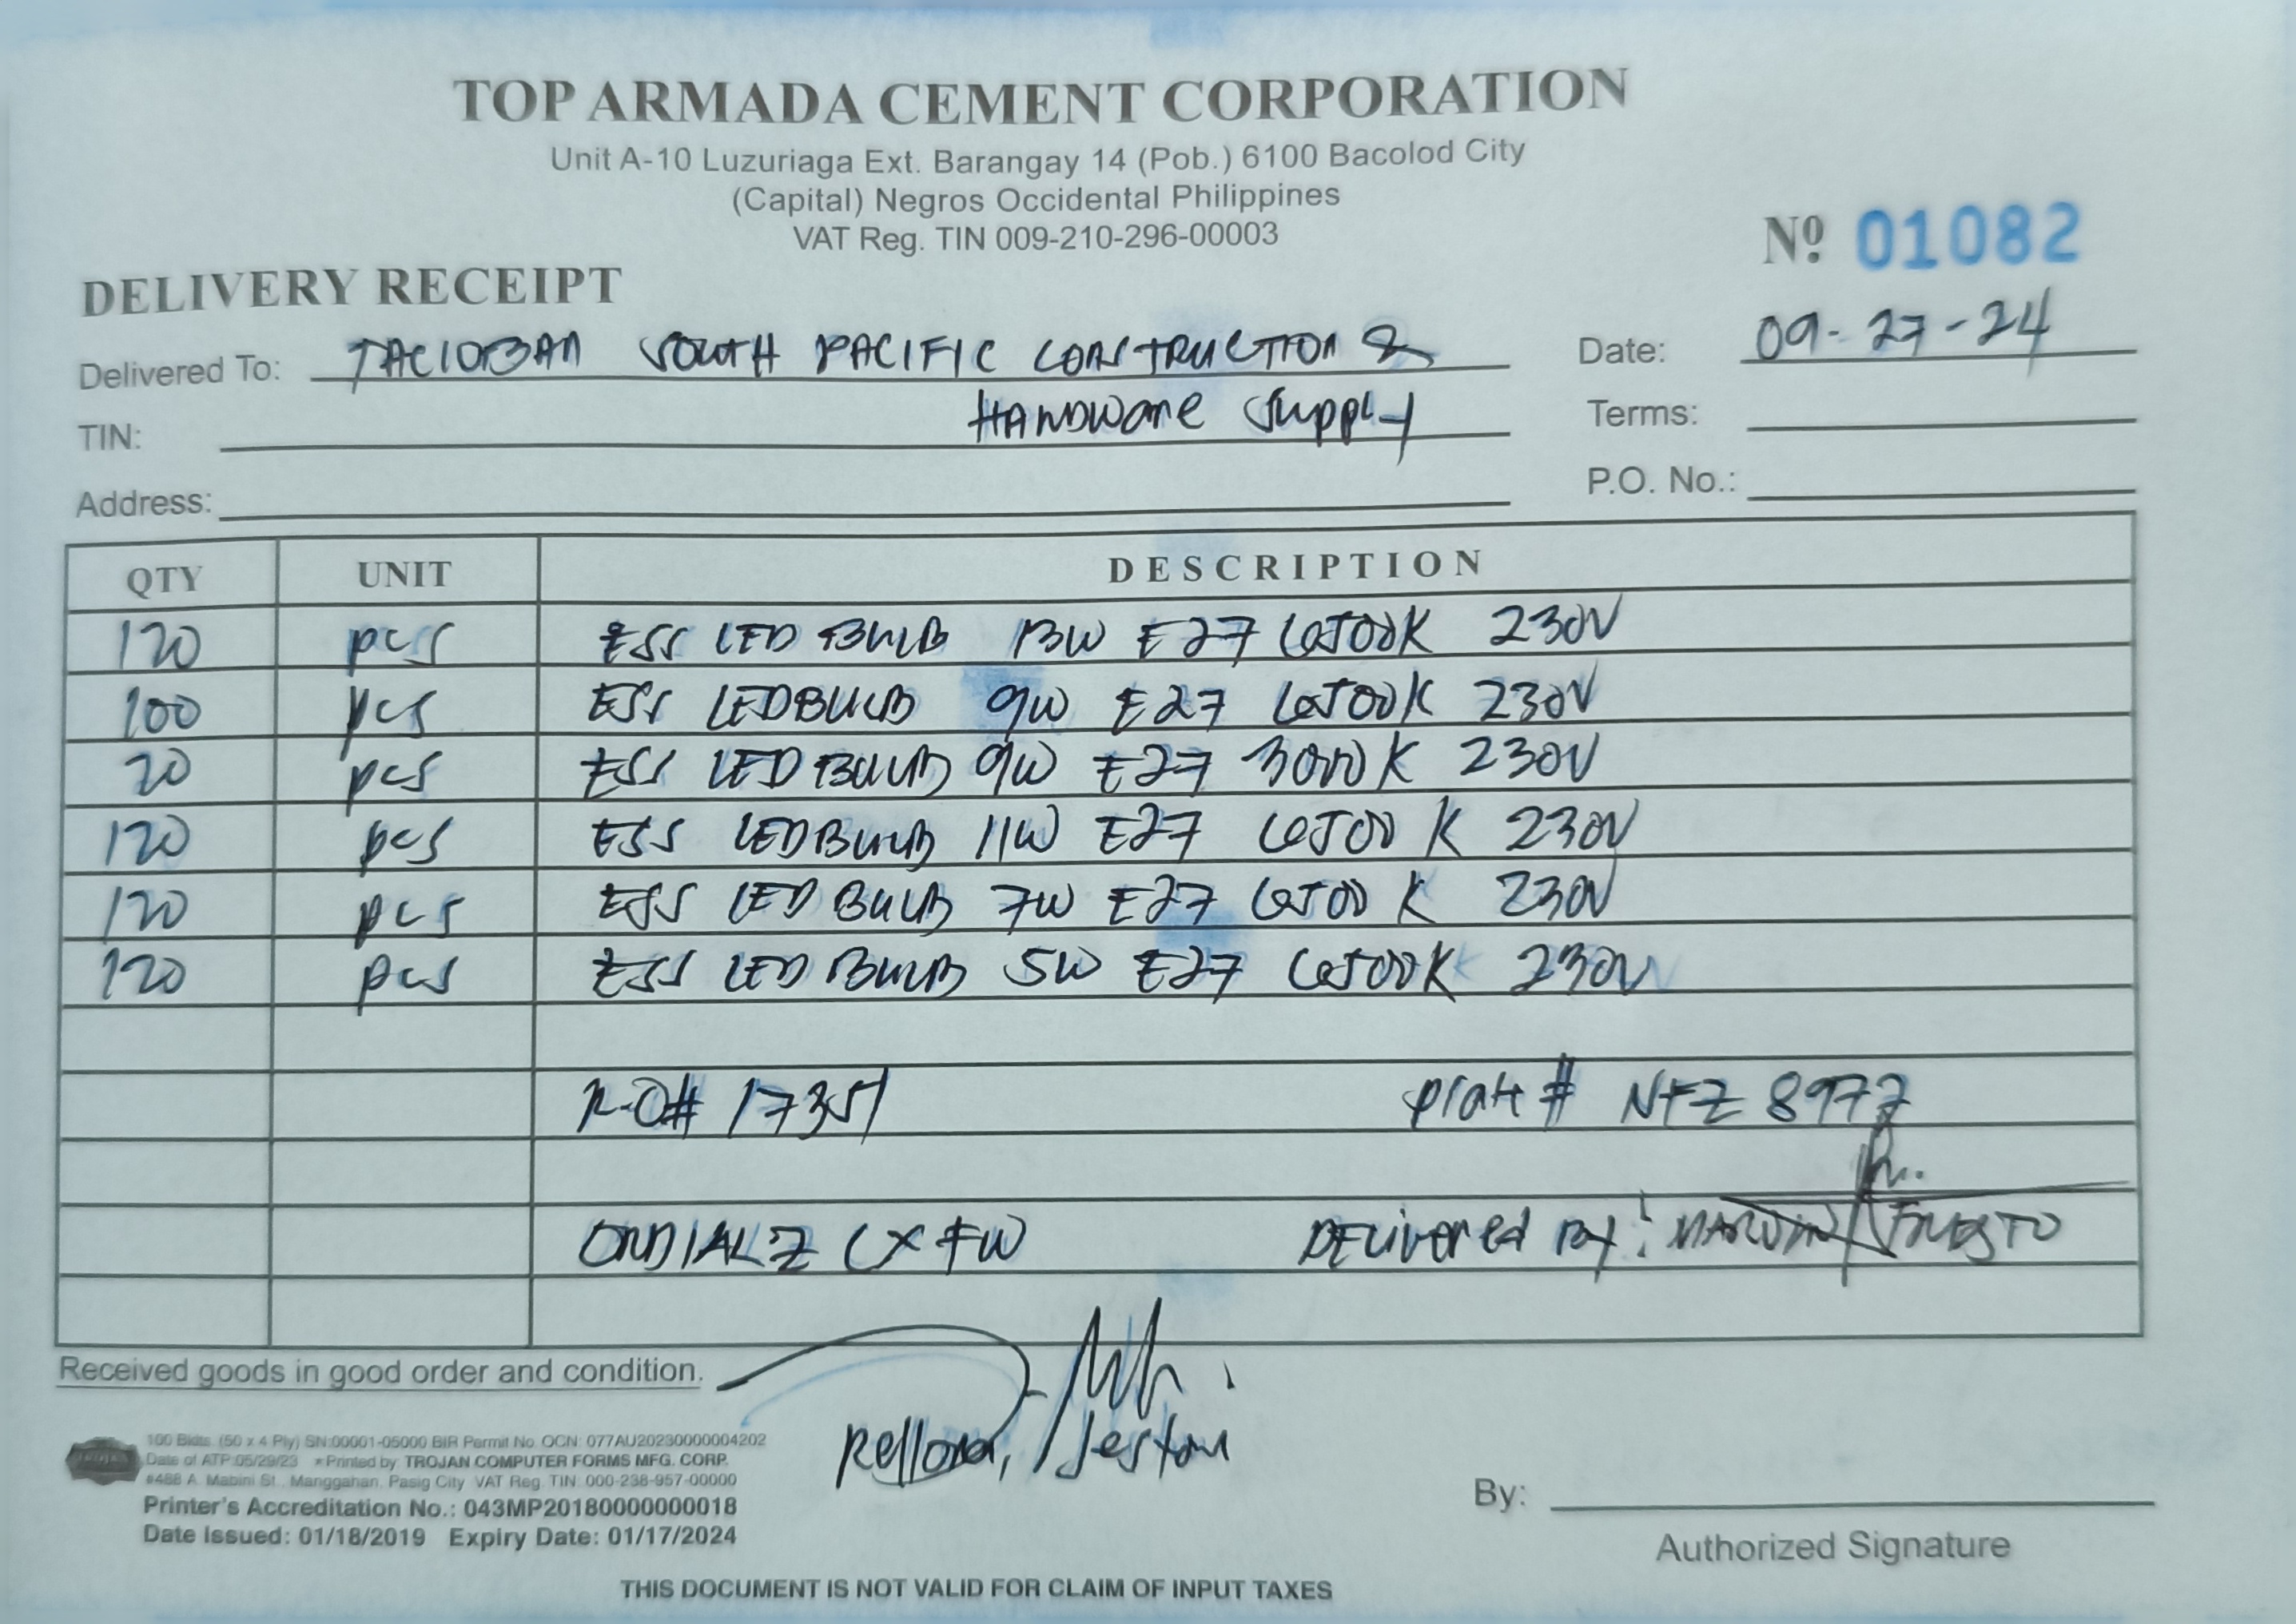 TOP ARMADA CEMENT CORPORATION
Unit A-10 Luzuriaga Ext. Barangay 14 (Pob.) 6100 Bacolod City
(Capital) Negros Occidental Philippines
VAT Reg. TIN 009-210-296-00003
Nº 01082
DELIVERY RECEIPT
Delivered To: TACLOBAN SOUTH PACIFIC CONSTRUCTION & Date: 09-27-24
TIN: HARDWARE SUPPLY Terms:
Address: P.O. No.:
QTY UNIT DESCRIPTION
120 pcs ESS LED BULB 13W E27 6500K 230V
100 pcs ESS LED BULB 9W E27 6500K 230V
20 pcs ESS LED BULB 9W E27 3000K 230V
120 pcs ESS LED BULB 11W E27 6500K 230V
120 pcs ESS LED BULB 7W E27 6500K 230V
120 pcs ESS LED BULB 5W E27 6500K 230V
Plate # NFZ 8977
DELIVERED BY:
Received goods in good order and condition.
100 Bklts. (50 x 4 Ply) SN:00001-05000 BIR Permit No. OCN: 077AU20230000004202
Date of ATP:05/29/23 *Printed by: TROJAN COMPUTER FORMS MFG. CORP.
#488 A. Mabini St., Manggahan, Pasig City VAT Reg. TIN: 000-238-957-00000
Printer's Accreditation No.: 043MP20180000000018
Date Issued: 01/18/2019 Expiry Date: 01/17/2024
By:
Authorized Signature
THIS DOCUMENT IS NOT VALID FOR CLAIM OF INPUT TAXES